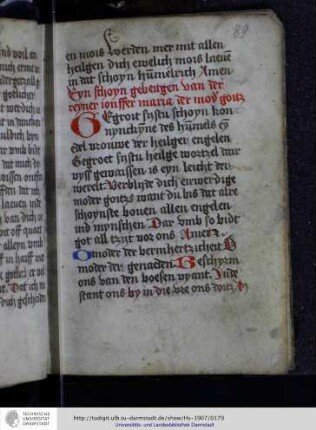 89
en mois werden mer mit allen
heilgen dich ewelich mois laeuē
in dat schoyn hūmelrich Amen
Eyn schoyn gebeitgen van der
reyner ionffer maria der moď gotz
Gegroit systu schoyn kon
nynckyne des hūmels eȳ
del vrouwe der heilger engelen
Gegroet systu heilge wortzel dar
vyss gewaissen is eyn leicht der
werelt Verblyde dich eirwerdige
moder goitzs want du bis dat alre
schoynste bouen allen engelen
ind mynschen Dar vmb so bidt
got all tzyt vor ons Amen
O moder der bermhertzicheit O
moder der genaeden Beschyrm
ons van den boesen vyant Inde
stant ons by in die vre ons doitz A
TECHNISCHE
UNIVERSITÄT
DARMSTADT
http://tudigit.ulb.tu-darmstadt.de/show/Hs-1907/0179
Universitäts- und Landesbibliothek Darmstadt